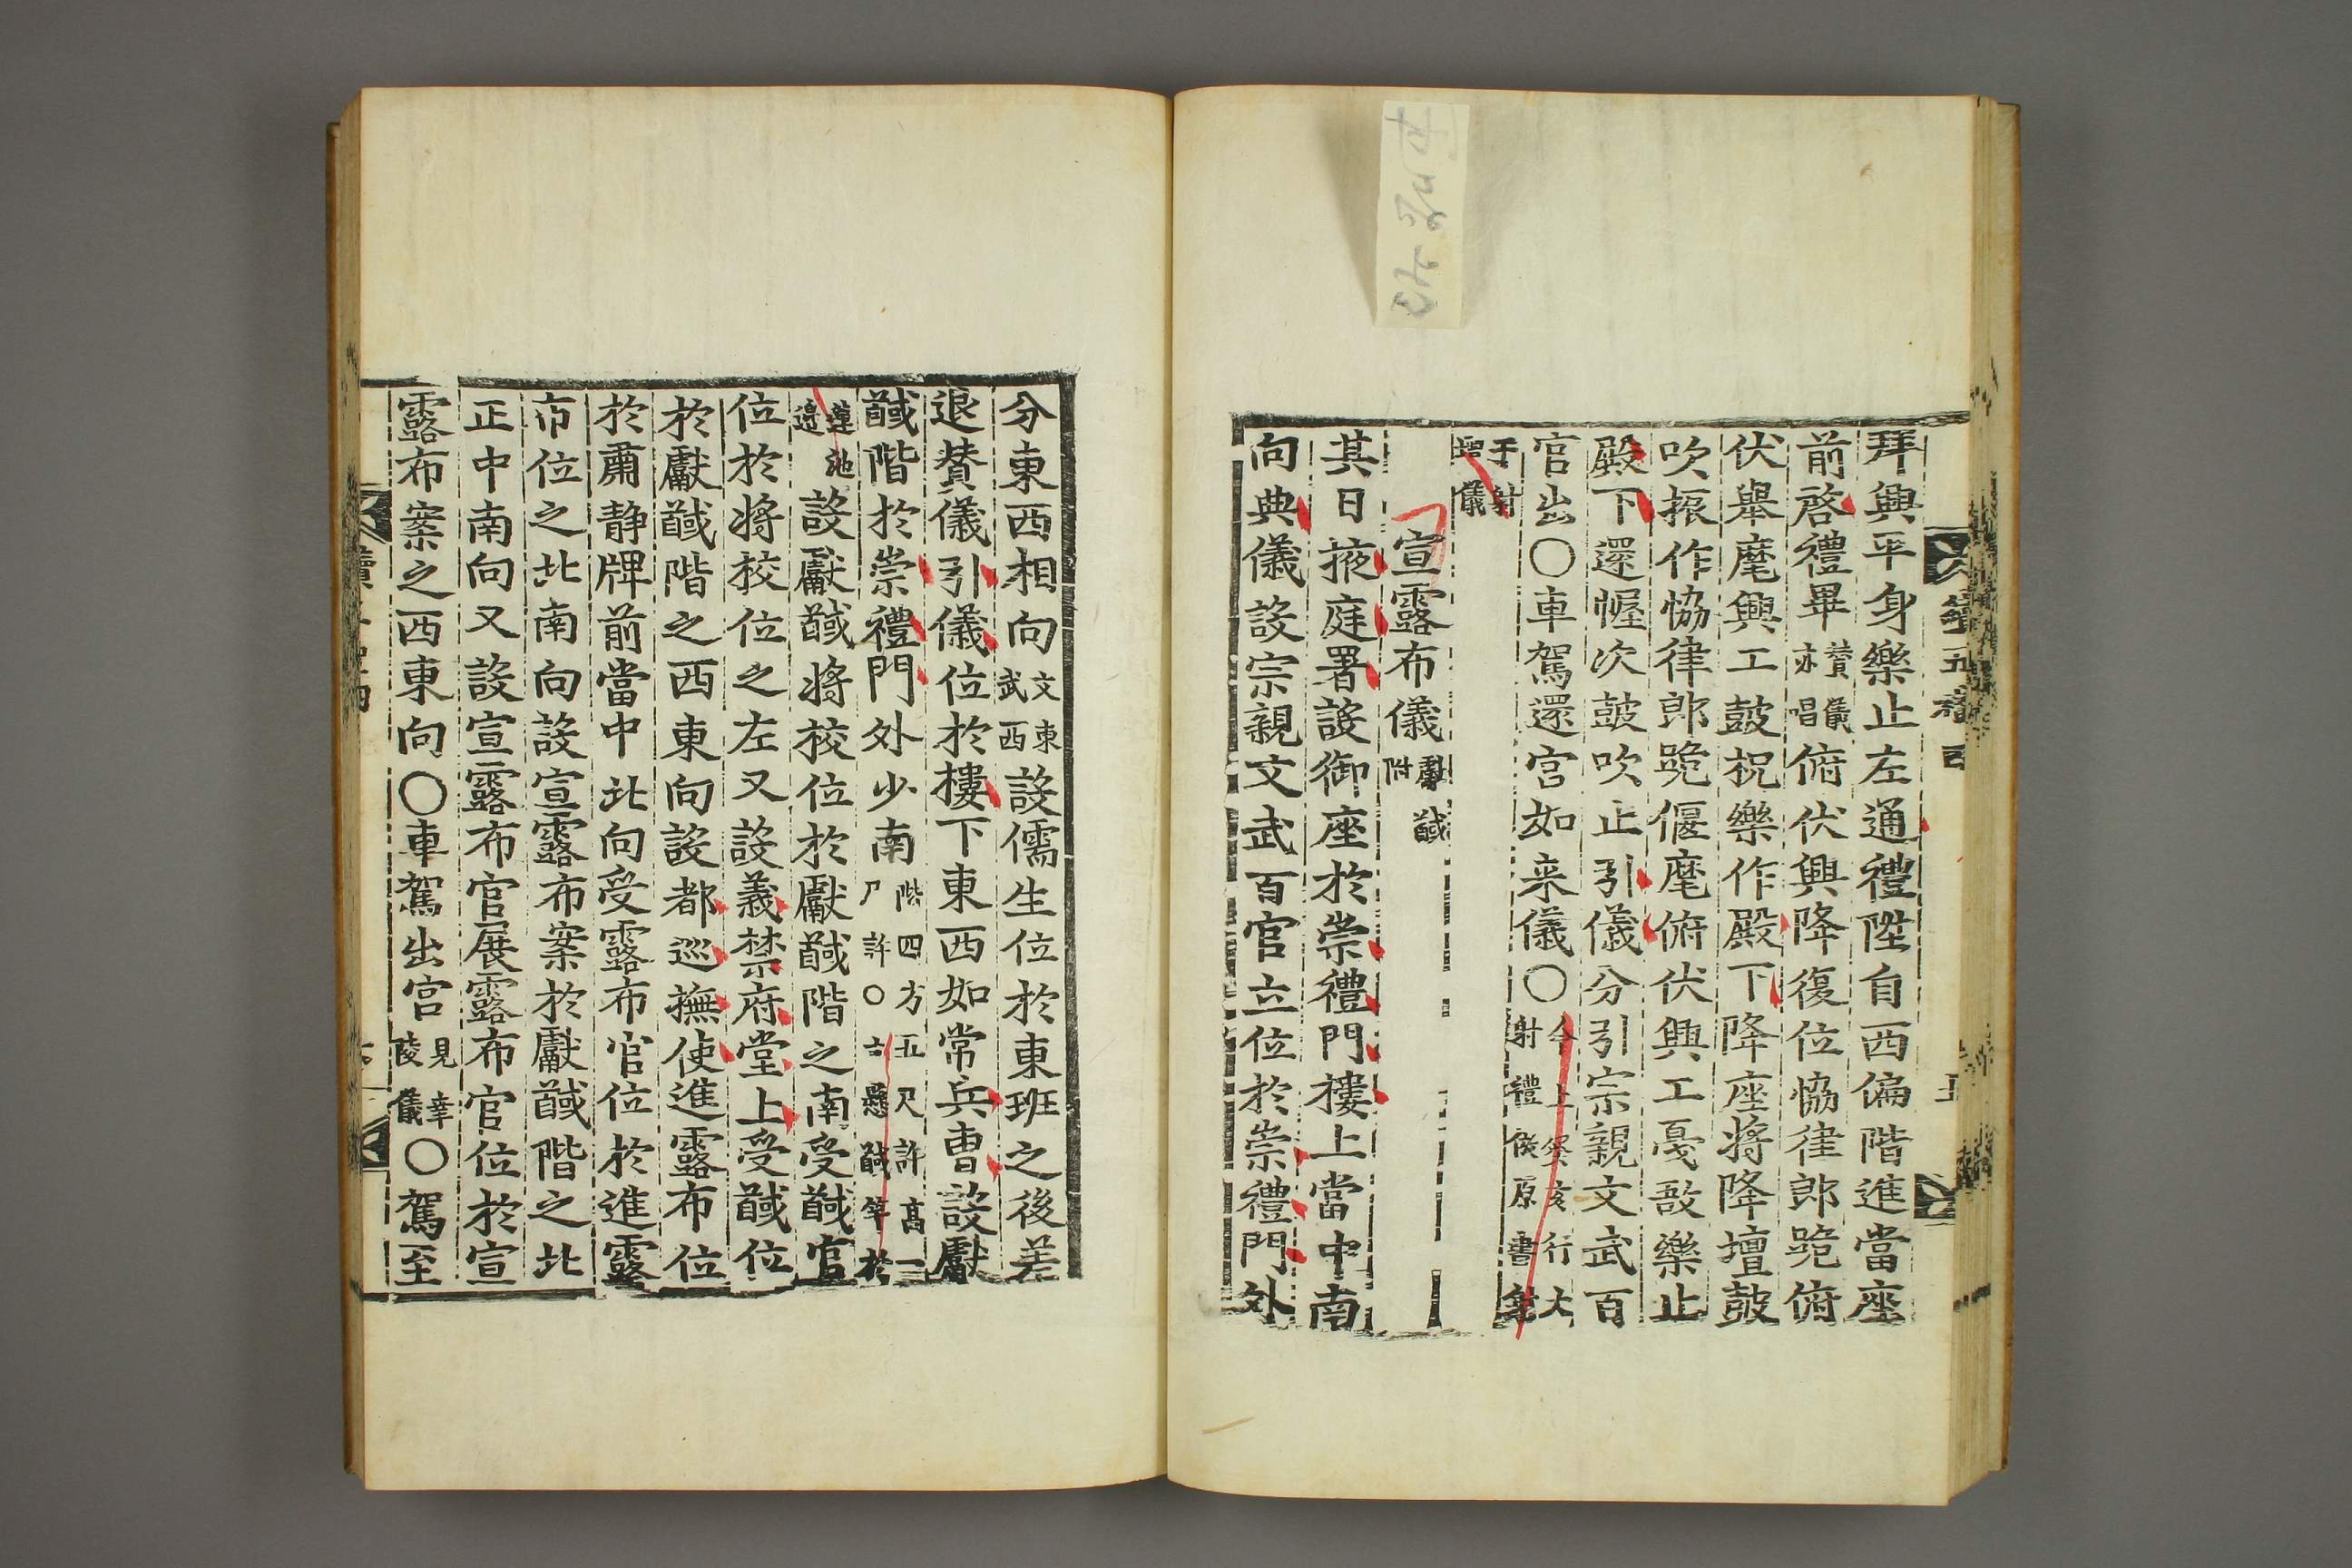 拜興平身樂止左通禮陞自西偏階進當座
前啓禮畢贊儀亦唱俯伏興降復位協律郎跪俯
伏擧麾興工鼓柷樂作殿下降座將降壇鼓
吹振作協律郎跪偃麾俯伏興工戛敔樂止
殿下還幄次鼓吹止引儀分引宗親文武百
官出〇車駕還宮如來儀〇今上癸亥行大射禮儀原書算
于射壇儀
宣露布儀獻馘附
其日掖庭署設御座於崇禮門樓上當中南
向典儀設宗親文武百官立位於崇禮門外
分東西相向文東武西設儒生位於東班之後差
退贊儀引儀位於樓下東西如常兵曹設獻
馘階於崇禮門外少南階四方五尺許高一尺許〇古懸馘竿於
蓮池邊設獻馘將校位於獻馘階之南受馘官
位於將校位之左又設義禁府堂上受馘位
於獻馘階之西東向設都巡撫使進露布位
於肅靜牌前當中北向受露布官位於進露
布位之北南向設宣露布案於獻馘階之北
正中南向又設宣露布官展露布官位於宣
露布案之西東向〇車駕出宮見幸陵儀〇駕至